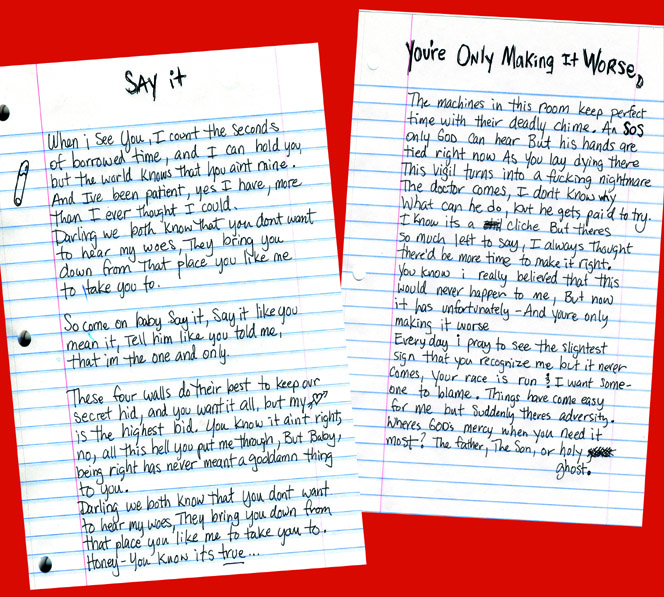 SAY it
When i See You, I count the seconds
of borrowed time, and I can hold you
but the world knows that you aint mine.
And Ive been patient, yes I have, more
than I ever thought I could.
Darling we both know that you dont want
to hear my woes, They bring you
down from That place you like me
to take you to.
So come on baby Say it, Say it like you
mean it, Tell him like you told me,
that im the one and only.
These four walls do their best to keep our
secret hid, and you want it all, but my
is the highest bid. You know it ain't right,
no, all this hell you put me though, But Baby,
being right has never meant a goddamn thing
to you.
Darling we both know that you dont want
to hear my woes, They bring you down from
that place you like me to take you to.
Honey-You know its true...
You're Only Making It Worse.
The machines in this room keep perfect
time with their deadly chime. An SOS
only God can hear But his hands are
tied right now As you lay dying there
This vigil turns into a fucking nightmare
The doctor comes, I don't know why
What can he do, but he gets paid to try.
I know its a cliche But theres
so much left to say, I always thought
there'd be more time to make it right.
You know i really believed that this
would never happen to me, But now
it has unfortunately - And youre only
making it worse
Every day i pray to see the slightest
sign that you recognize me but it never
comes, Your race is run & I want some-
one to blame. Things have come easy
for me but suddenly theres adversity.
Wheres GOD's mercy when you need it
most? The father, The Son, or holy
ghost.